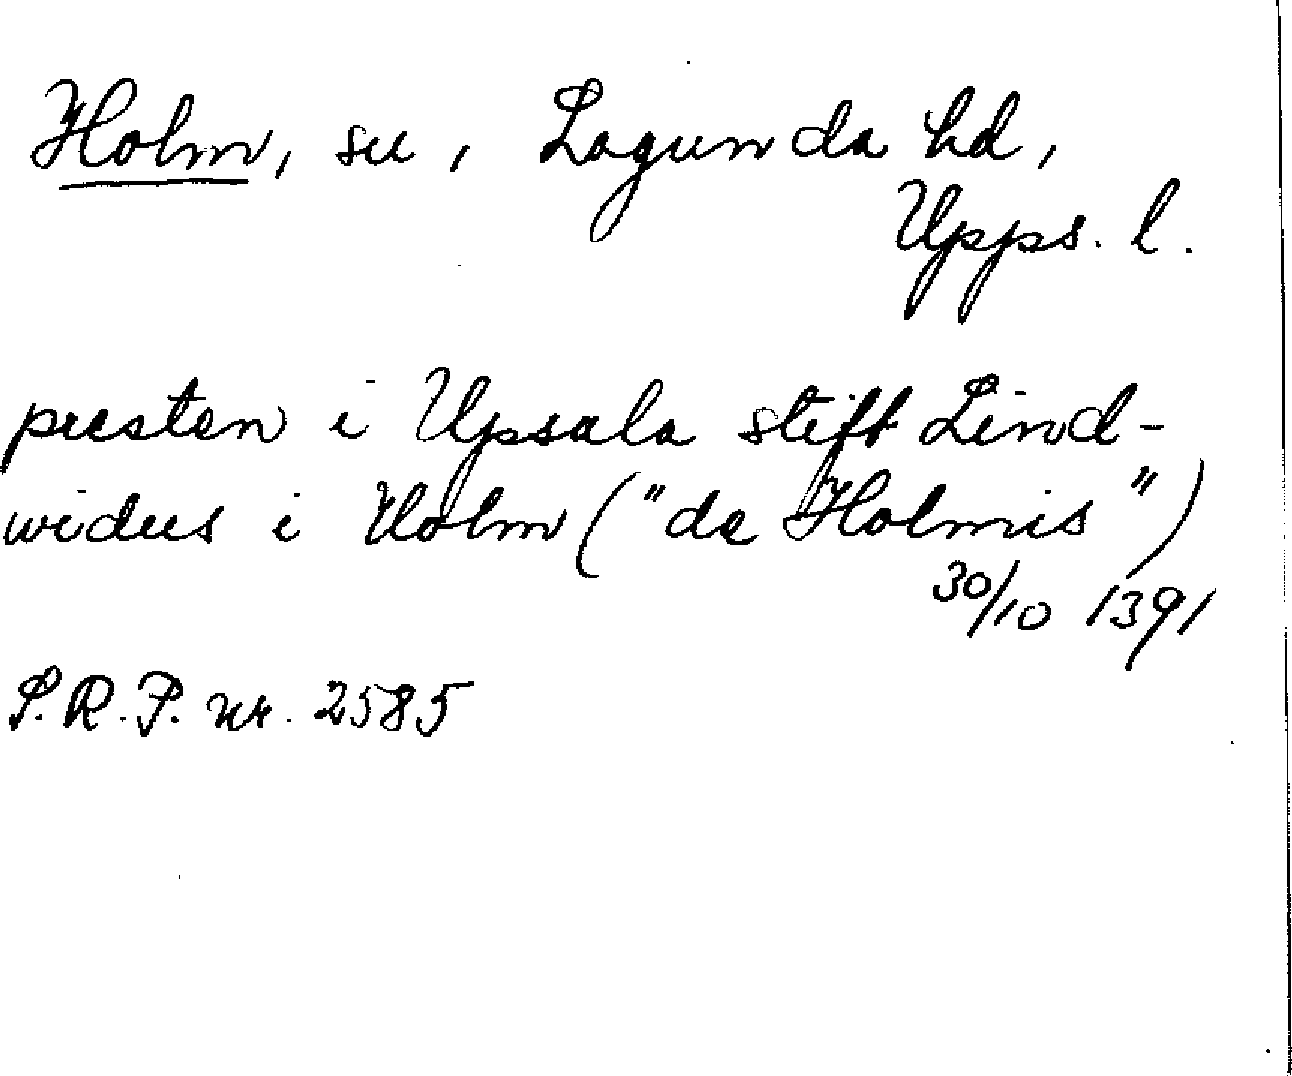 Holm, sn, Lagunda hd,
Upps. l.
presten i Upsala stift Lind-
widus i Holm ("de Holmis")
30/10 1391
S.R.P. nr. 2585